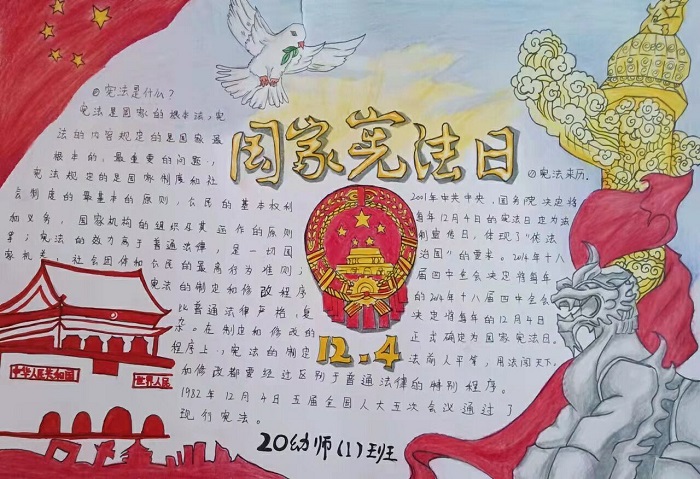 国家宪法日
①宪法是什么？
宪法是国家的根本法；宪
法的内容规定的是国家最
根本的、最重要的问题；
宪法规定的是国家制度和社
会制度的最基本的原则，公民的基本权利
和义务，国家机构的组织及其运作的原则
等；宪法的效力高于普通法律，是一切国
家机关、社会团体和公民的最高行为准则；
宪法的制定和修改程序
比普通法律严格，复
杂。在制定和修改的
程序上，宪法的制定
和修改都要经过区别于普通法律的特别程序。
1982年12月4日五届全国人大五次会议通过了
现行宪法。
②宪法来历。
2001年中共中央、国务院决定将
每年12月4日的宪法日定为法
制宣传日，体现了“依法
治国”的要求。2014年十八
届四中全会决定将每年
的2014年十八届四中全会
决定将每年的12月4日
正式确定为国家宪法日。
法前人平等，用法闯天下。
12.4
中华人民共和国
世界人民
20幼师(1)班